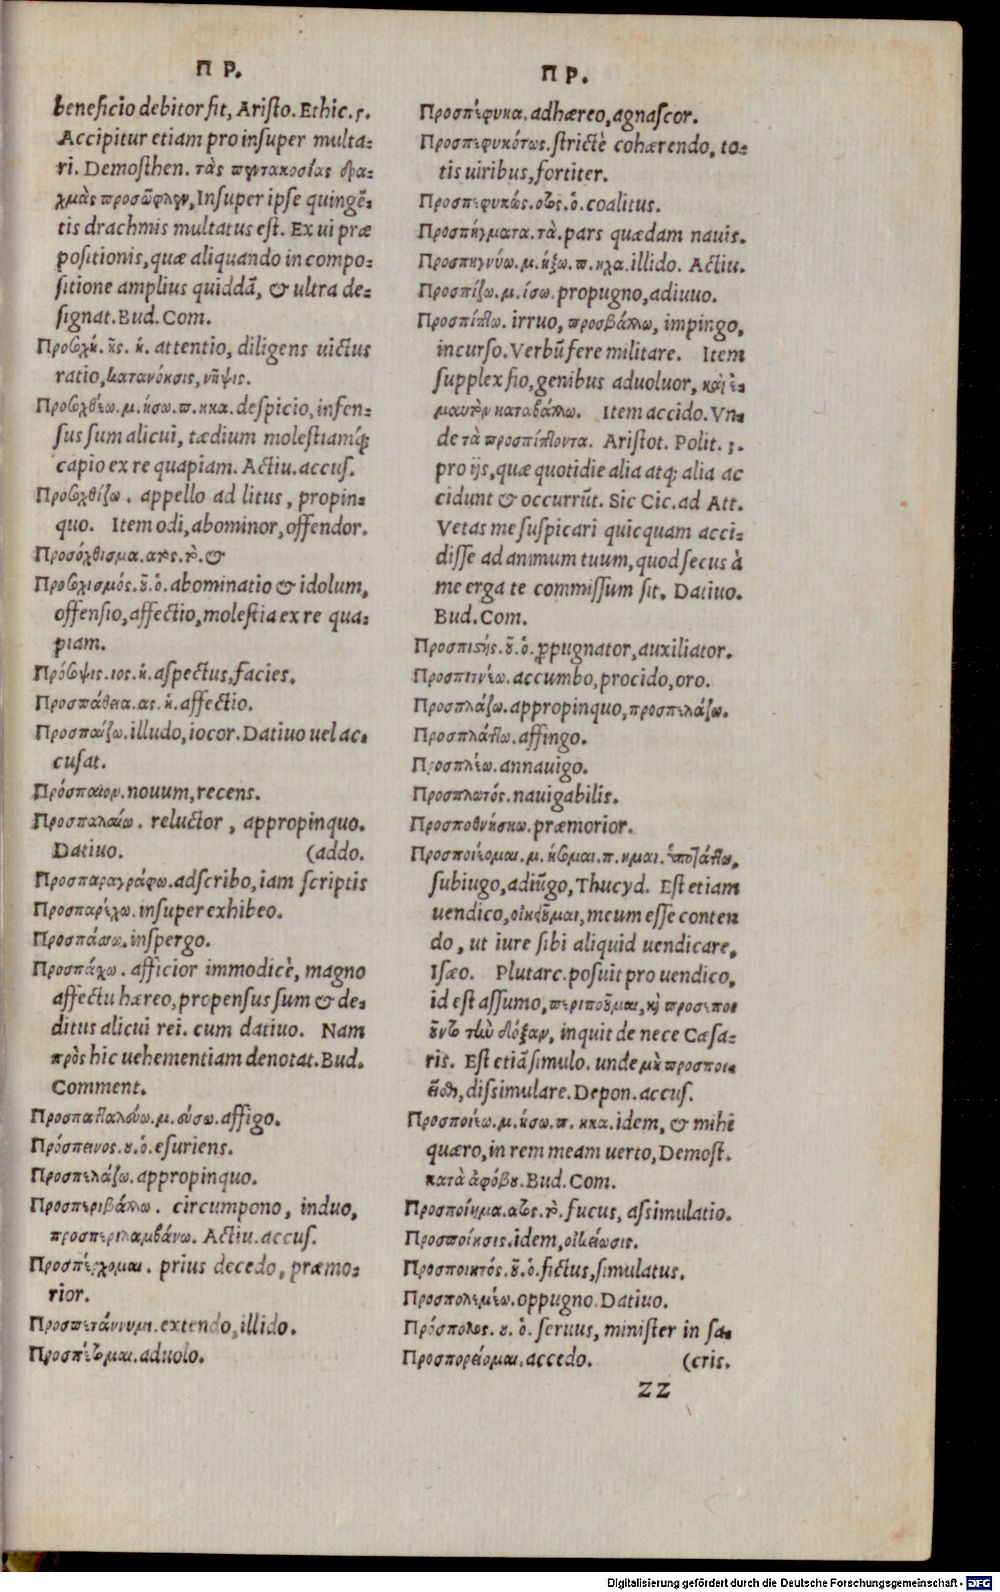 ΠΡ.
beneficio debitor fit, Aristo. Ethic. 5.
Accipitur etiam pro insuper multa-
ri. Demosthen. τὰς πεντακοσίας δρα-
χμὰς προσῶφλεν, Insuper ipse quingē-
tis drachmis multatus est. Ex ui præ
positionis, quæ aliquando in compo-
sitione amplius quiddā, & ultra de-
signat. Bud. Com.
Προσοχή. ῆς. ἡ. attentio, diligens uictus
ratio, κατανόησις, νῆψις.
Προσοχθέω. μ. ήσω. π. ηκα. despicio, infen-
sus sum alicui, tædium molestiamq́;
capio ex re quapiam. Actiu. accus.
Προσοχθίζω. appello ad litus, propin-
quo. Item odi, abominor, offendor.
Προσόχθισμα. ατος. τό. &
Προσοχισμός. οῦ. ὁ. abominatio & idolum,
offensio, affectio, molestia ex re qua-
piam.
Πρόσοψις. ιος. ἡ. aspectus, facies.
Προσπάθεια. ας. ἡ. affectio.
Προσπαίζω. illudo, iocor. Datiuo uel ac-
cusat.
Πρόσπαιον. nouum, recens.
Προσπαλαίω. reluctor, appropinquo.
Datiuo. (addo.
Προσπαραγράφω. adscribo, iam scriptis
Προσπαρέχω. insuper exhibeo.
Προσπάσσω. inspergo.
Προσπάσχω. afficior immodicè, magno
affectu hæreo, propensus sum & de-
ditus alicui rei. cum datiuo. Nam
πρὸς hic uehementiam denotat. Bud.
Comment.
Προσπατταλεύω. μ. εύσω. affigo.
Πρόσπεινος. ου. ὁ. esuriens.
Προσπελάζω. appropinquo.
Προσπεριβάλλω. circumpono, induo,
προσπεριλαμβάνω. Actiu. accus.
Προσπέρχομαι. prius decedo, præmo-
rior.
Προσπετάννυμι. extendo, illido.
Προσπέτομαι. aduolo.
ΠΡ.
Προσπέφυκα. adhæreo, agnascor.
Προσπεφυκότως. strictè cohærendo, to-
tis uiribus, fortiter.
Προσπεφυκώς. οτος. ὁ. coalitus.
Προσπήγματα. τὰ. pars quædam nauis.
Προσπηγνύω. μ. ήξω. π. ηχα. illido. Actiu.
Προσπίζω. μ. ίσω. propugno, adiuuo.
Προσπίπτω. irruo, προσβάλλω, impingo,
incurso. Verbū fere militare. Item
supplex fio, genibus aduoluor, καὶ ἐ-
μαυτὸν καταβάλλω. Item accido. Vn-
de τὰ προσπίπτοντα. Aristot. Polit. 3.
pro ijs, quæ quotidie alia atq; alia ac
cidunt & occurrūt. Sic Cic. ad Att.
Vetas me suspicari quicquam acci-
disse ad animum tuum, quod secus à
me erga te commissum sit. Datiuo.
Bud. Com.
Προσπιστής. οῦ. ὁ. ꝓpugnator, auxiliator.
Προσπιτνέω. accumbo, procido, oro.
Προσπλάζω. appropinquo, προσπελάζω.
Προσπλάττω. affingo.
Προσπλέω. annauigo.
Προσπλωτός. nauigabilis.
Προσποθνήσκω. præmorior.
Προσποιέομαι. μ. ήσομαι. π. ημαι. ὑποτάττω,
subiugo, adiūgo, Thucyd. Est etiam
uendico, οἰκειοῦμαι, meum esse conten
do, ut iure sibi aliquid uendicare,
Isæo. Plutarc. posuit pro uendico,
id est assumo, περιποιοῦμαι, καὶ προσεποι
οῦντο τὴν δόξαν, inquit de nece Cæsa-
ris. Est etiā simulo. unde μὴ προσποι-
εῖσθαι, dissimulare. Depon. accus.
Προσποιέω. μ. ήσω. π. ηκα. idem, & mihi
quæro, in rem meam uerto, Demost.
κατὰ ἀφόβου. Bud. Com.
Προσποίημα. ατος. τό. fucus, assimulatio.
Προσποίησις. idem, οἰκείωσις.
Προσποιητός. οῦ. ὁ. fictus, simulatus.
Προσπολεμέω. oppugno. Datiuo.
Πρόσπολος. ου. ὁ. seruus, minister in sa-
Προσπορεύομαι. accedo. (cris.
ZZ
Digitalisierung gefördert durch die Deutsche Forschungsgemeinschaft - DFG